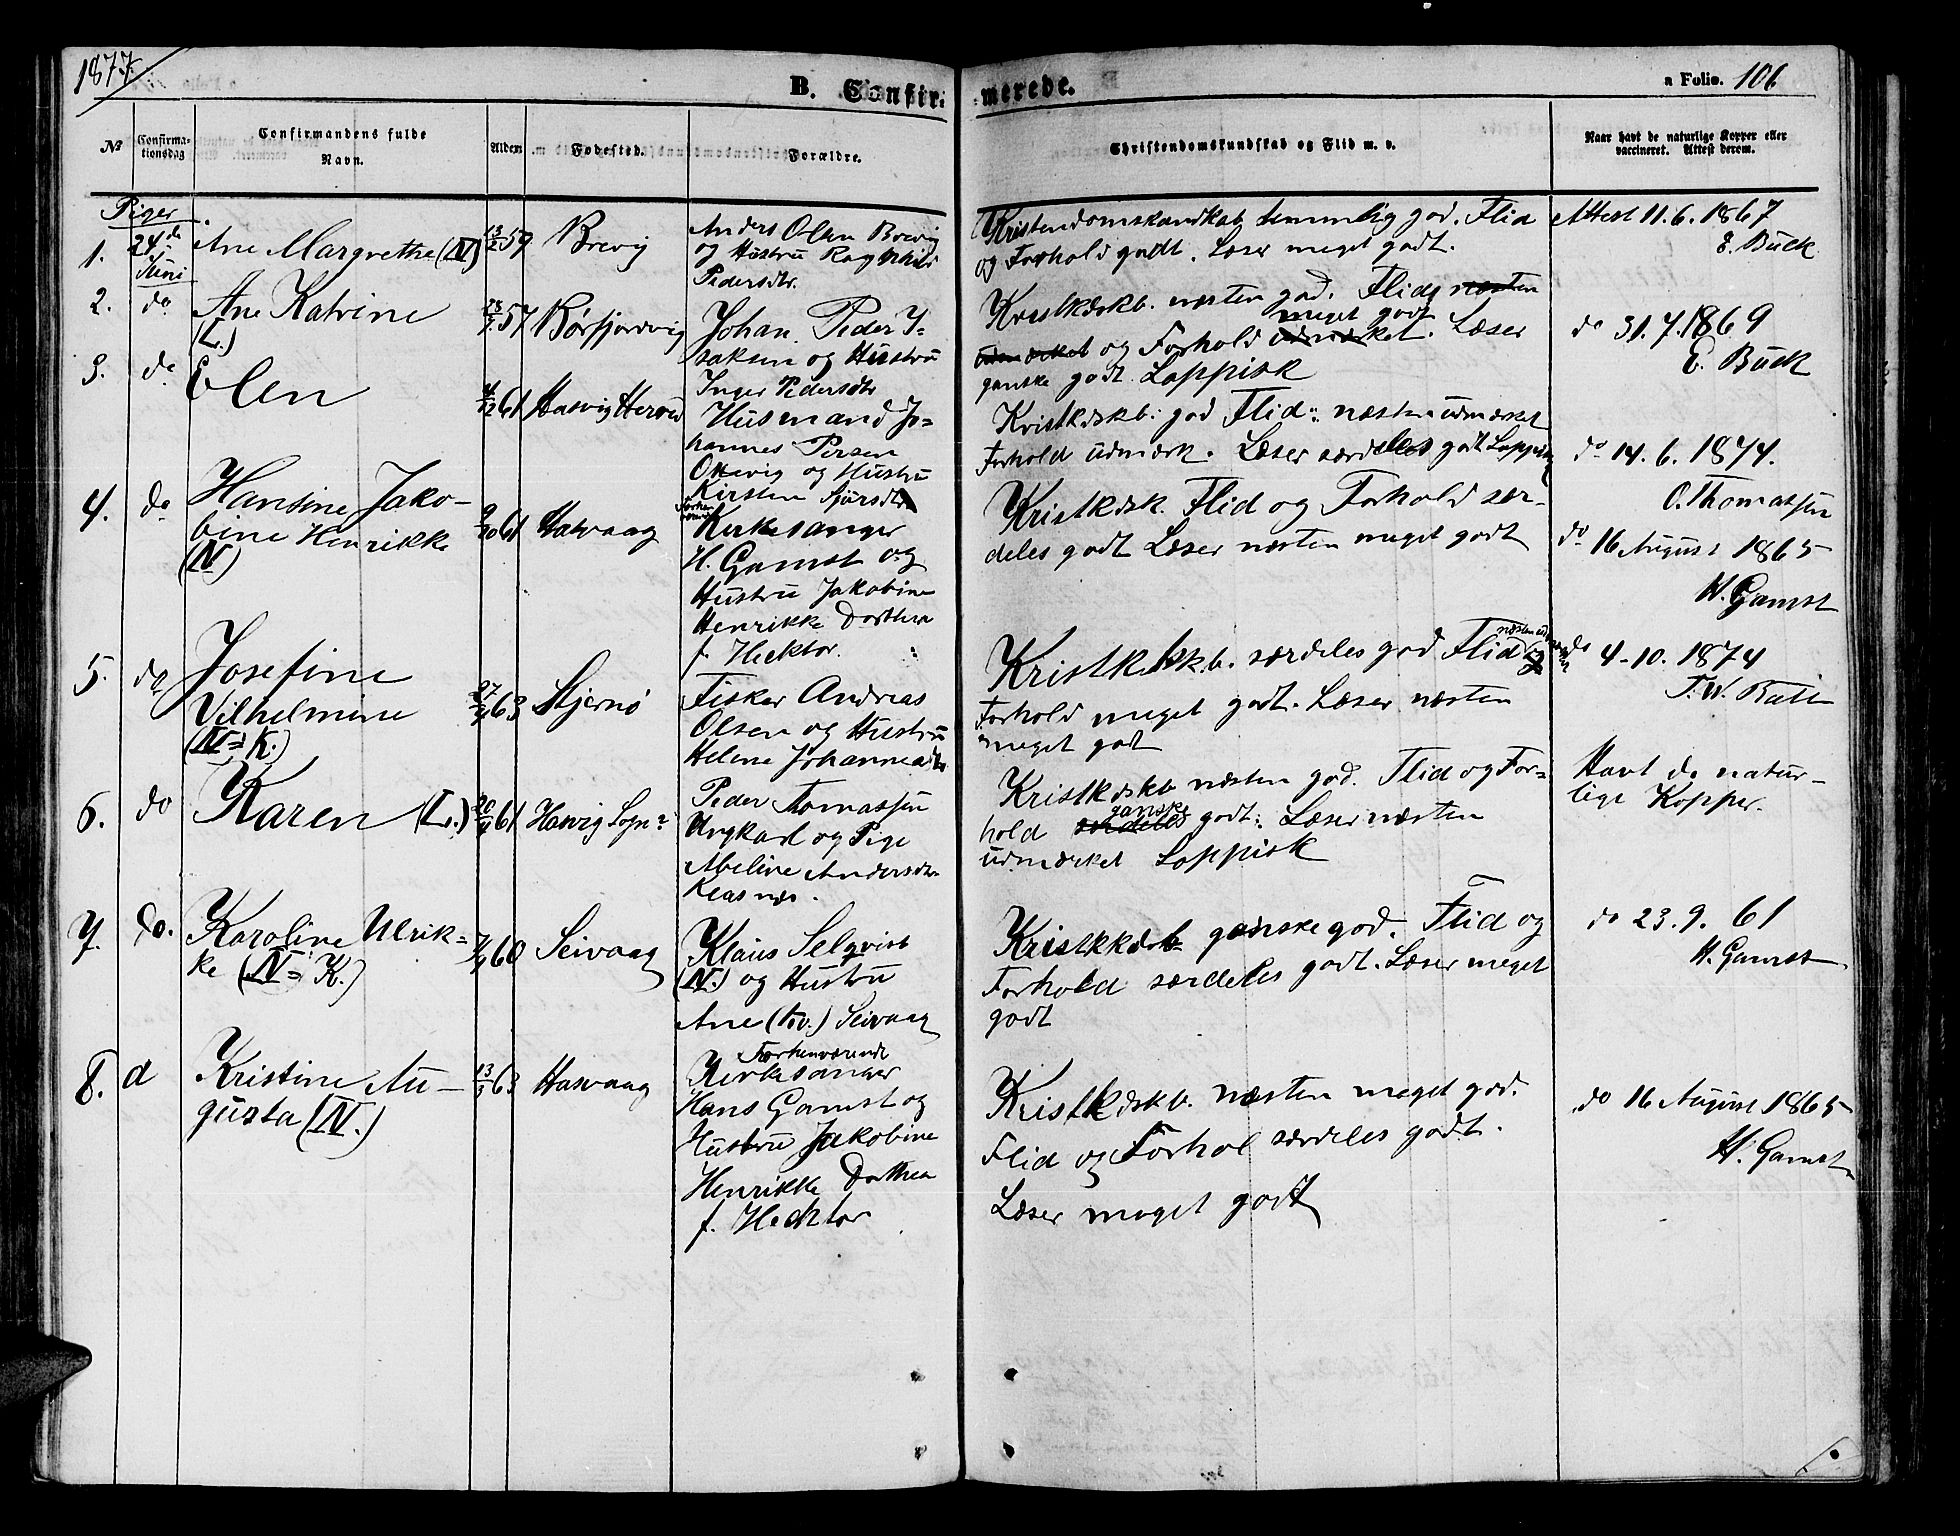 1877.
B. Confirmerede.
a Folio. 106
No
Confirmationsdag
Confirmandens fulde Navn.
Alder.
Fødested.
Forældre.
Christendomskundskab og Flid m. v.
Naar havt de naturlige Kopper eller vaccineret. Attest derom.
Piger
1. 24de Juni
Ane Margrethe (N)
13/2 59
Brevig
Anders Olsen Brevig
og Hustru Ragnhild
Pedersdtr.
Kristendomskundkab temmlig god. Flid
og Forhold godt. Læser meget godt.
Attest 11.6.1867
E. Buck
2. do
Ane Katrine
(L.)
57
Børfjordvig
Johan Peder I-
saksen og Hustru
Inger Pedersdtr
Kristkdskb. næsten god. Flid næsten
meget godt
udmærket og Forhold udmærket. Læser
ganske godt. Lappisk
do 31.7.1869
E. Buck
3. do
Elen
4/12 61
Hasvig Herred
Husmand Jo-
hannes Persen
Oksvig og Hustru
Kirsten Sjursdtr
Kristkdskb: god Flid: næsten udmærket
Forhold udmærk. Læser særdeles godt Lappisk
do 14. 6. 1874.
O. Thomassen
4. do
Hansine Jako-
bine Henrikke
(N)
9/10 61
Hasvaag
Forhen
værende
Kirkesanger
H. Gamst og
Hustru Jakobine
Henrikke Dorthea
f. Hecktor.
Kristkdsk. Flid og Forhold sær-
deles godt Læser næsten meget godt
do 16 August 1865
H. Gamst
5. do
Josefine
Vilhelmine
(N=K.)
63
Stjernø
Fisker Andreas
Olsen og Hustru
Helene Johannesdtr
Kristkdskb. særdeles god Flid næsten
Forhold meget godt. Læser næsten
meget godt
do 4-10. 1874
6. do
Karen (L.)
61
Hasvig Sogn:
Peder Tomassen
Ungkarl og Pige
Abeline Andersdtr
Kristkdskb næsten god. Flid og For-
ganske
hold særdeles godt: Læser næsten
udmærket Lappisk
Havt de natur-
lige Kopper.
7. do.
Karoline Ulrik-
ke (N=K.)
60
Seivaag
Klaus Selqvist
(N.) og Hustru
Ane (kv.) Seivaag
Kristkkdskb ganske god. Flid og
Forhold særdeles godt. Læser meget
godt
do 23.9. 61
H. Gamst
8. d
Kristine Au-
gusta (N.)
13/3 63
Hasvaag
Forhenværende
Kirkesanger
Hans Gamst og
Hustru Jakobine
Henrikke Dorthea
f. Hecktor
Kristkdskb. næsten meget god.
Flid og Forhol særdeles godt.
Læser meget godt
do 16 August 1865
H. Gamst